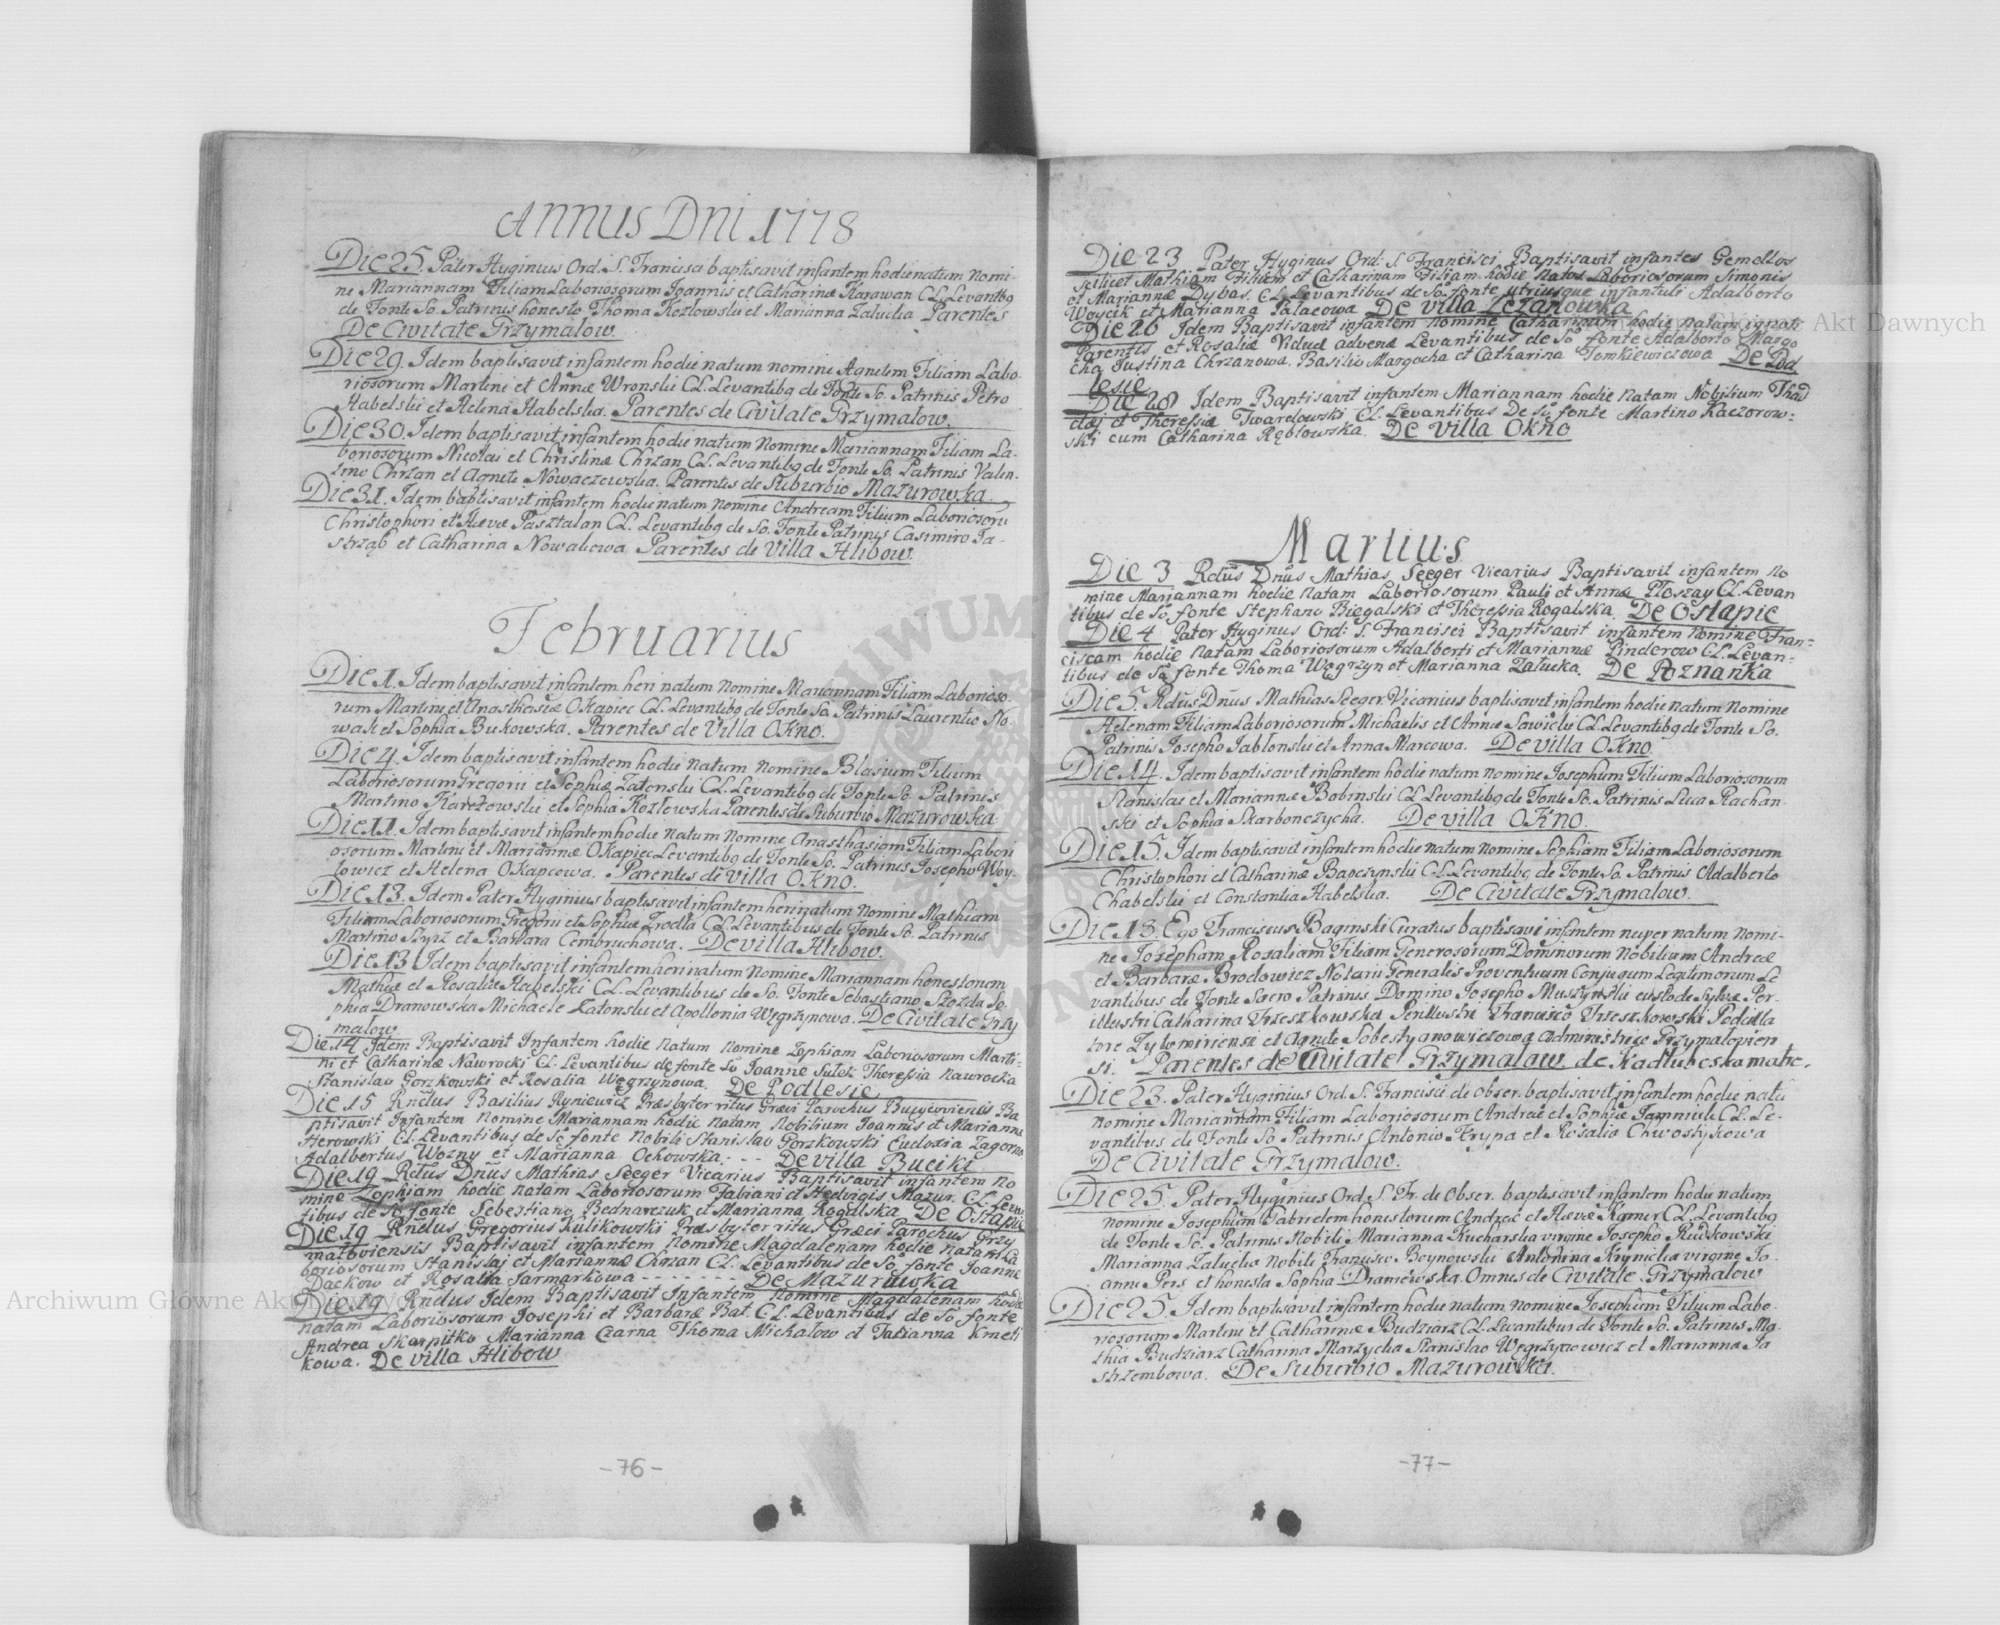 Annus Dni 1778
Die 25. Pater Hyginius Ord. S. Francisci baptisavit infantem hodie natum Nomi-
ne Mariannam Filiam Laboriosorum Joannis et Catharinæ Karawan CL. Levantibq
de Fonte So. Patrinis honesto Thoma Kozlowski et Marianna Zalucka Parentes
De Civitate Grzymalow.
Die 29. Idem baptisavit infantem hodie natum nomine Agnetem Filiam Labo-
riosorum Martini et Annæ Wronski CL. Levantibq de Fonte So. Patrinis Petro
Habelski et Helena Habelska. Parentes de Civitate Grzymalow.
Die 30. Idem baptisavit infantem hodie natum Nomine Mariannam Filiam La-
boriosorum Nicolai et Christinæ Chrzan CL. Levantibq de Fonte So. Patrinis Valen-
tino Chrzan et Agnete Nowaczewska. Parentes de Suburbio Mazurowska.
Die 31. Idem baptisavit infantem hodie natum Nomine Andream Filium Laboriosoru
Christophori et Hævæ Pasztalan CL. Levantibq de So. Fonte Patrinis Casimiro Ja-
strząb et Catharina Nowakowa Parentes de Villa Hlibow.
Februarius
Die 1. Idem baptisavit infantem heri natum Nomine Mariannam Filiam Laborioso-
rum Martini et Anasthasiæ Okapiec CL. Levantibq de Fonte So. Patrinis Laurentio No-
wak et Sophia Bukowska. Parentes de Villa Okno.
Die 4. Idem baptisavit infantem hodie natum Nomine Blasium Filium
Laboriosorum Gregorii et Sophiæ Zatonski CL. Levantibq de Fonte So. Patrinis
Martino Karczowski et Sophia Kozlowska Parentes de Suburbio Mazurowska.
Die 11. Idem baptisavit infantem hodie natum Nomine Anasthasiam Filiam Labori
osorum Martini et Mariannæ Okapiec Levantibq de Fonte So. Patrinis Josepho Woy-
towicz et Helena Okapcowa. Parentes de Villa Okno.
Die 13. Idem Pater Hyginius baptisavit infantem heri natum Nomine Mathiam
Filium Laboriosorum Gregorii et Sophiæ Zrodla CL. Levantibus de Fonte So. Patrinis
Martino Szpz et Barbara Cembruchowa. De villa Hlibow.
Die 13 Idem baptisavit infantem heri natum Nomine Mariannam honestorum
Mathiæ et Rosaliæ Habelski CL. Levantibus de So. Fonte Sebastiano Szozda So-
phia Dranowska Michaele Zatonski et Apollonia Węgrzynowa. De Civitate Grzy
malow.
Die 14 Idem Baptisavit Infantem hodie Natum Nomine Zophiam Laboriosorum Marti-
ni et Catharinæ Nawrocki CL. Levantibus de fonte So Joanne Sulek Theressia Nawrocka
Stanislao Gorzkowski et Rosalia Węgrzynowa. De Podlesie
Die 15 Rndus Basilius Ryniewicz Præsbyter ritus Græci Parochus Bucycoviensis Ba
ptisavit Infantem Nomine Mariannam hodie Natam Nobilium Joannis et Marianna
Herowski CL. Levantibus de So fonte Nobili Stanislao Gorzkowski Eudoxia Zagorno
Adalbertus Wozny et Marianna Ochowska. - - - De villa Buciki
Die 19 Rdus Dnus Mathias Seeger Vicarius Baptisavit infantem No
mine Zophiam hodie Natam Laboriosorum Fabiani et Hedvigis Mazur. CL. Levan
tibus de So fonte Sebestiano Bednarczuk et Marianna Rogalska De Ostapie
Die 19 Rndus Gregorius Kulikowski Præsbyter ritus Græci Parochus Grzy
maloviensis Baptisavit infantem Nomine Magdalenam hodie natam La
boriosorum Stanislai et Mariannæ Chrzan CL. Levantibus de So fonte Joanne
Dackow et Rosalia Jarmarkowa - - - - - - - De Mazurowska
Die 19 Rndus Idem Baptisavit Infantem Nomine Magdalenam hodie
natam Laboriosorum Josephi et Barbaræ Bat. CL. Levantibus de So fonte
Andrea Skarpitko Marianna Czarna Thoma Michalow et Tatianna Kmeti
kowa. De villa Hlibow
-76-
Die 23 Pater Hyginus Ord: S. Francisci Baptisavit infantes Gemellos
scilicet Mathiam Filium et Catharinam Filiam hodie Natos Laboriosorum Simonis
et Mariannæ Dybas. CL. Levantibus de So fonte utriusque infantuli Adalberto
Woycik et Marianna Palacowa De villa Lezanowka
Die 26 Idem Baptisavit infantem Nomine Catharinam hodie Natam ignoti
Parentis et Rosaliæ Viduæ advenæ Levantibus de So fonte Adalberto Margo
cha Justina Chrzanowa. Basilio Margocha et Catharina Tomkiewiczowa De Pod
lesie
Die 28 Idem Baptisavit infantem Mariannam hodie Natam Nobilium Thad
dæi et Theressiæ Twardowski CL. Levantibus De So fonte Martino Kaczorow:
ski cum Catharina Rębłowska. De villa Okno
Martius
Die 3 Rdus Dnus Mathias Seeger Vicarius Baptisavit infantem No
mine Mariannam hodie Natam Laboriosorum Pauli et Annæ Ploszay CL. Levan
tibus de So fonte Stephano Biegalski et Theressia Rogalska. De Ostapie
Die 4 Pater Hyginus Ord: S. Francisci Baptisavit infantem Nomine Fran-
ciscam hodie Natam Laboriosorum Adalberti et Mariannæ Pinderow CL. Levan-
tibus de So fonte Thoma Węgrzyn et Marianna Zalucka. De Poznanka
Die 5. Rdus Dnus Mathias Seeger Vicarius baptisavit infantem hodie natum Nomine
Helenam Filiam Laboriosorum Michaelis et Annæ Sawicki CL. Levantibq de Fonte So.
Patrinis Josepho Jablonski et Anna Marcowa. De villa Okno.
Die 14. Idem baptisavit infantem hodie natum nomine Josephum Filium Laboriosorum
Stanislai et Mariannæ Bobinski CL Levantibq de Fonte So. Patrinis Luca Rachan-
ski et Sophia Skarbonczycha. De villa Okno.
Die 15. Idem baptisavit infantem hodie natum nomine Sophiam Filiam Laboriosorum
Christophori et Catharinæ Bapczynski CL. Levantibq de Fonte So. Patrinis Adalberto
Chabelski et Constantia Habelska. De Civitate Grzymalow.
Die 18. Ego Franciscus Baginski Curatus baptisavi infantem nuper natum Nomi-
ne Josepham Rosaliam Filiam Generosorum Dominorum Nobilium Andreæ
et Barbaræ Brodowicz Notarii Generalis Proventuum Conjugum Legitimorum Le-
vantibus de Fonte Sacro Patrinis Domino Josepho Muszynski custode Sylvæ Per-
illustri Catharina Trzeszkowska Perillustri Francisco Trzeszkowski Podcilla
tore Zytomiriense et Agnete Sobestyanowiczowa Administrice Grzymalovien
si. Parentes de Civitate Grzymalow. de Kadlubeska matre.
Die 23. Pater Hyginius Ord. S. Francisci de Obser. baptisavit infantem hodie natu
nomine Mariannam Filiam Laboriosorum Andreæ et Sophiæ Jamnicki CL. Le-
vantibus de Fonte So Patrinis Antonio Krypa et Rosalia Chwostykowa
De Civitate Grzymalow.
Die 25. Pater Hyginius Ord. S. Fr. de Obser. baptisavit infantem hodie natum
nomine Josephum Gabrielem honestorum Andreæ et Hævæ Kamer CL. Levantibq
de Fonte So. Patrinis Nobili Marianna Kucharska virgine Josepho Rudkowski
Marianna Zalucka Nobili Francisco Boynowski Antonina Krynicka virgine Jo-
anni Pers et honesta Sophia Draniewska. Omnes de Civitate Grzymalow
Die 25. Idem baptisavit infantem hodie natum Nomine Josephum Filium Labo-
riosorum Martini et Catharinæ Budziarz CL. Levantibus de Fonte So. Patrinis Ma-
thia Budziarz Catharina Marzycka Stanislao Węgrzynowicz et Marianna Ja
strzembowa. De Suburbio Mazurowska.
-77-
Archiwum Główne Akt Dawnych